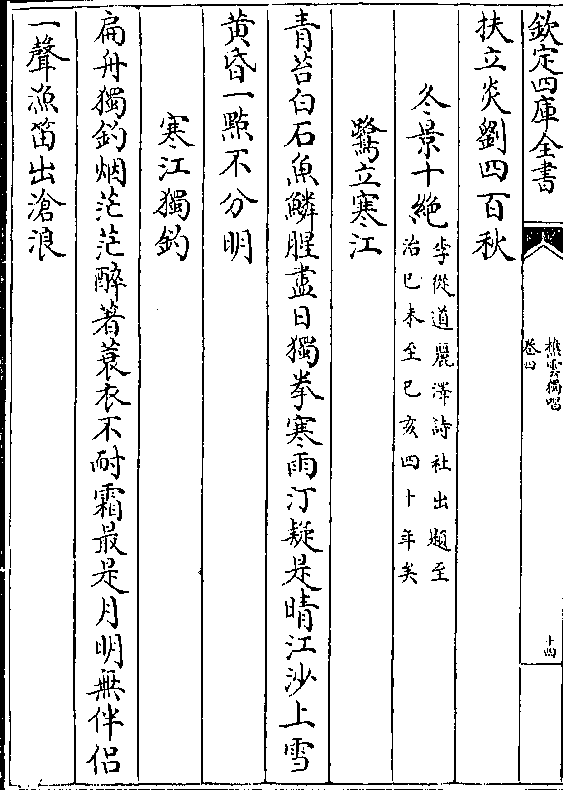 欽定四庫全書
樵雲獨唱
卷四
十四
扶立炎劉四百秋
冬景十絶
李從道麗澤詩社出題至
治己未至己亥四十年矣
鷺立寒江
青苔白石魚鱗腥盡日獨拳寒雨汀疑是晴江沙上雪
黄昏一點不分明
寒江獨釣
扁舟獨釣烟茫茫醉著蓑衣不耐霜最是月明無伴侣
一聲漁笛出滄浪